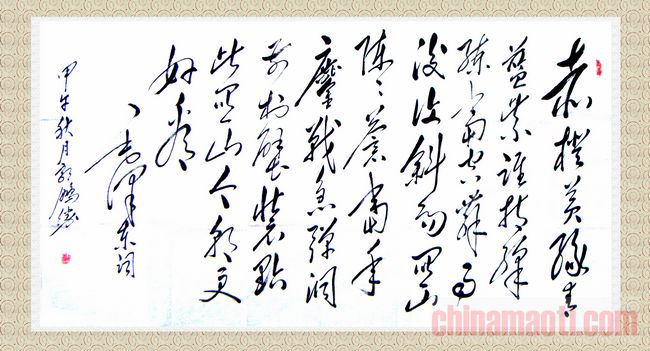 赤橙黄绿青
蓝紫谁持彩
练当空舞雨
後復斜阳関山
陣々蒼當年
鏖戰急弹洞
前村壁装點
此関山今朝更
好看
毛泽东词
甲午秋月
chinamaoti.com